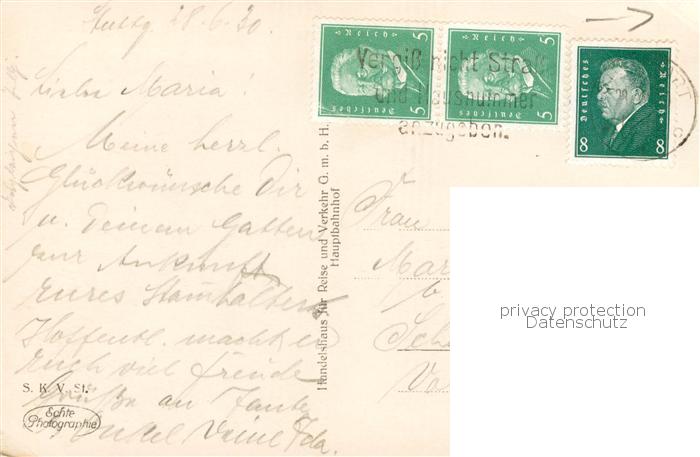 Stuttg 28.6.30.
Liebe Maria!
Meine herzl.
Glückwünsche Dir
u. Deinem Gatten
zur Ankunft
eures Stammhalters
Hoffentl. macht er
euch viel Freude
Grüße an Tante
Onkel Deine Ida.
S. K. V. St.
Echte
Photographie
Handelshaus für Reise und Verkehr G. m. b. H.
Hauptbahnhof
5 Deutsches Reich 5
5 Deutsches Reich 5
8 Deutsches Reich 8
Vergiß nicht Straße
und Hausnummer
anzugeben.
Frau
Mar
b/
Sch
privacy protection
Datenschutz